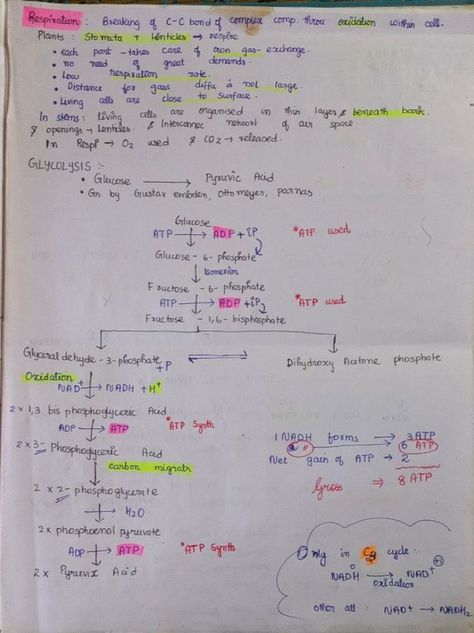 Respiration : Breaking of C-C bond of complex comp. throu oxidation within cell.
Plants : Stomata + Lenticles → respire.
• each part - takes care of own gas-exchange.
• no need of great demands.
• Low respiration rate.
• Distance for gass diffu is not large.
• Living cells are close to surface.
In stems :- Living cells are organised in thin layers & beneath bark.
& openings → Lenticles. & Interconnec netword of air space
In Respn → O2 used & CO2 → released.
GLYCOLYSIS :-
• Glucose → Pyruvic Acid
• Gn by Gustav embden, Otto meyer, parnas
Glucose
ATP → ADP + iP *ATP used
Glucose - 6 - phosphate
Isomerim
Fructose - 6 - phosphate
ATP → ADP + iP *ATP used
Fructose - 1,6 - bisphosphate
Glyceraldehyde - 3 - phosphate + P ⇌ Dihydroxy Acetone phosphate
Oxidation
NAD+ → NADH + H+
2 x 1,3 bis phosphoglyceric Acid
ADP → ATP *ATP Synth
2 x 3- Phosphoglyceric Acid
carbon migrats
2 x 2- phosphoglycerate
→ H2O
2x phosphoenol pyruvate
ADP → ATP *ATP Synth
2x Pyruvix Acid
1 NADH forms → 3 ATP
2 " → 6 ATP
Net gain of ATP → 2
Gross ⇒ 8 ATP
Only in C4 cycle :
NADH → NAD+
oxidation
other all : NAD+ → NADH2